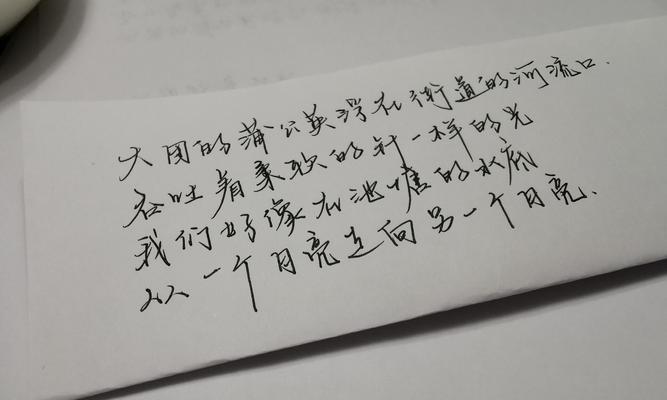 大团的蒲公英浮在街道的河流口.
吞吐着柔软的针一样的光
我们好像在池塘的水底
从一个月亮走向另一个月亮.